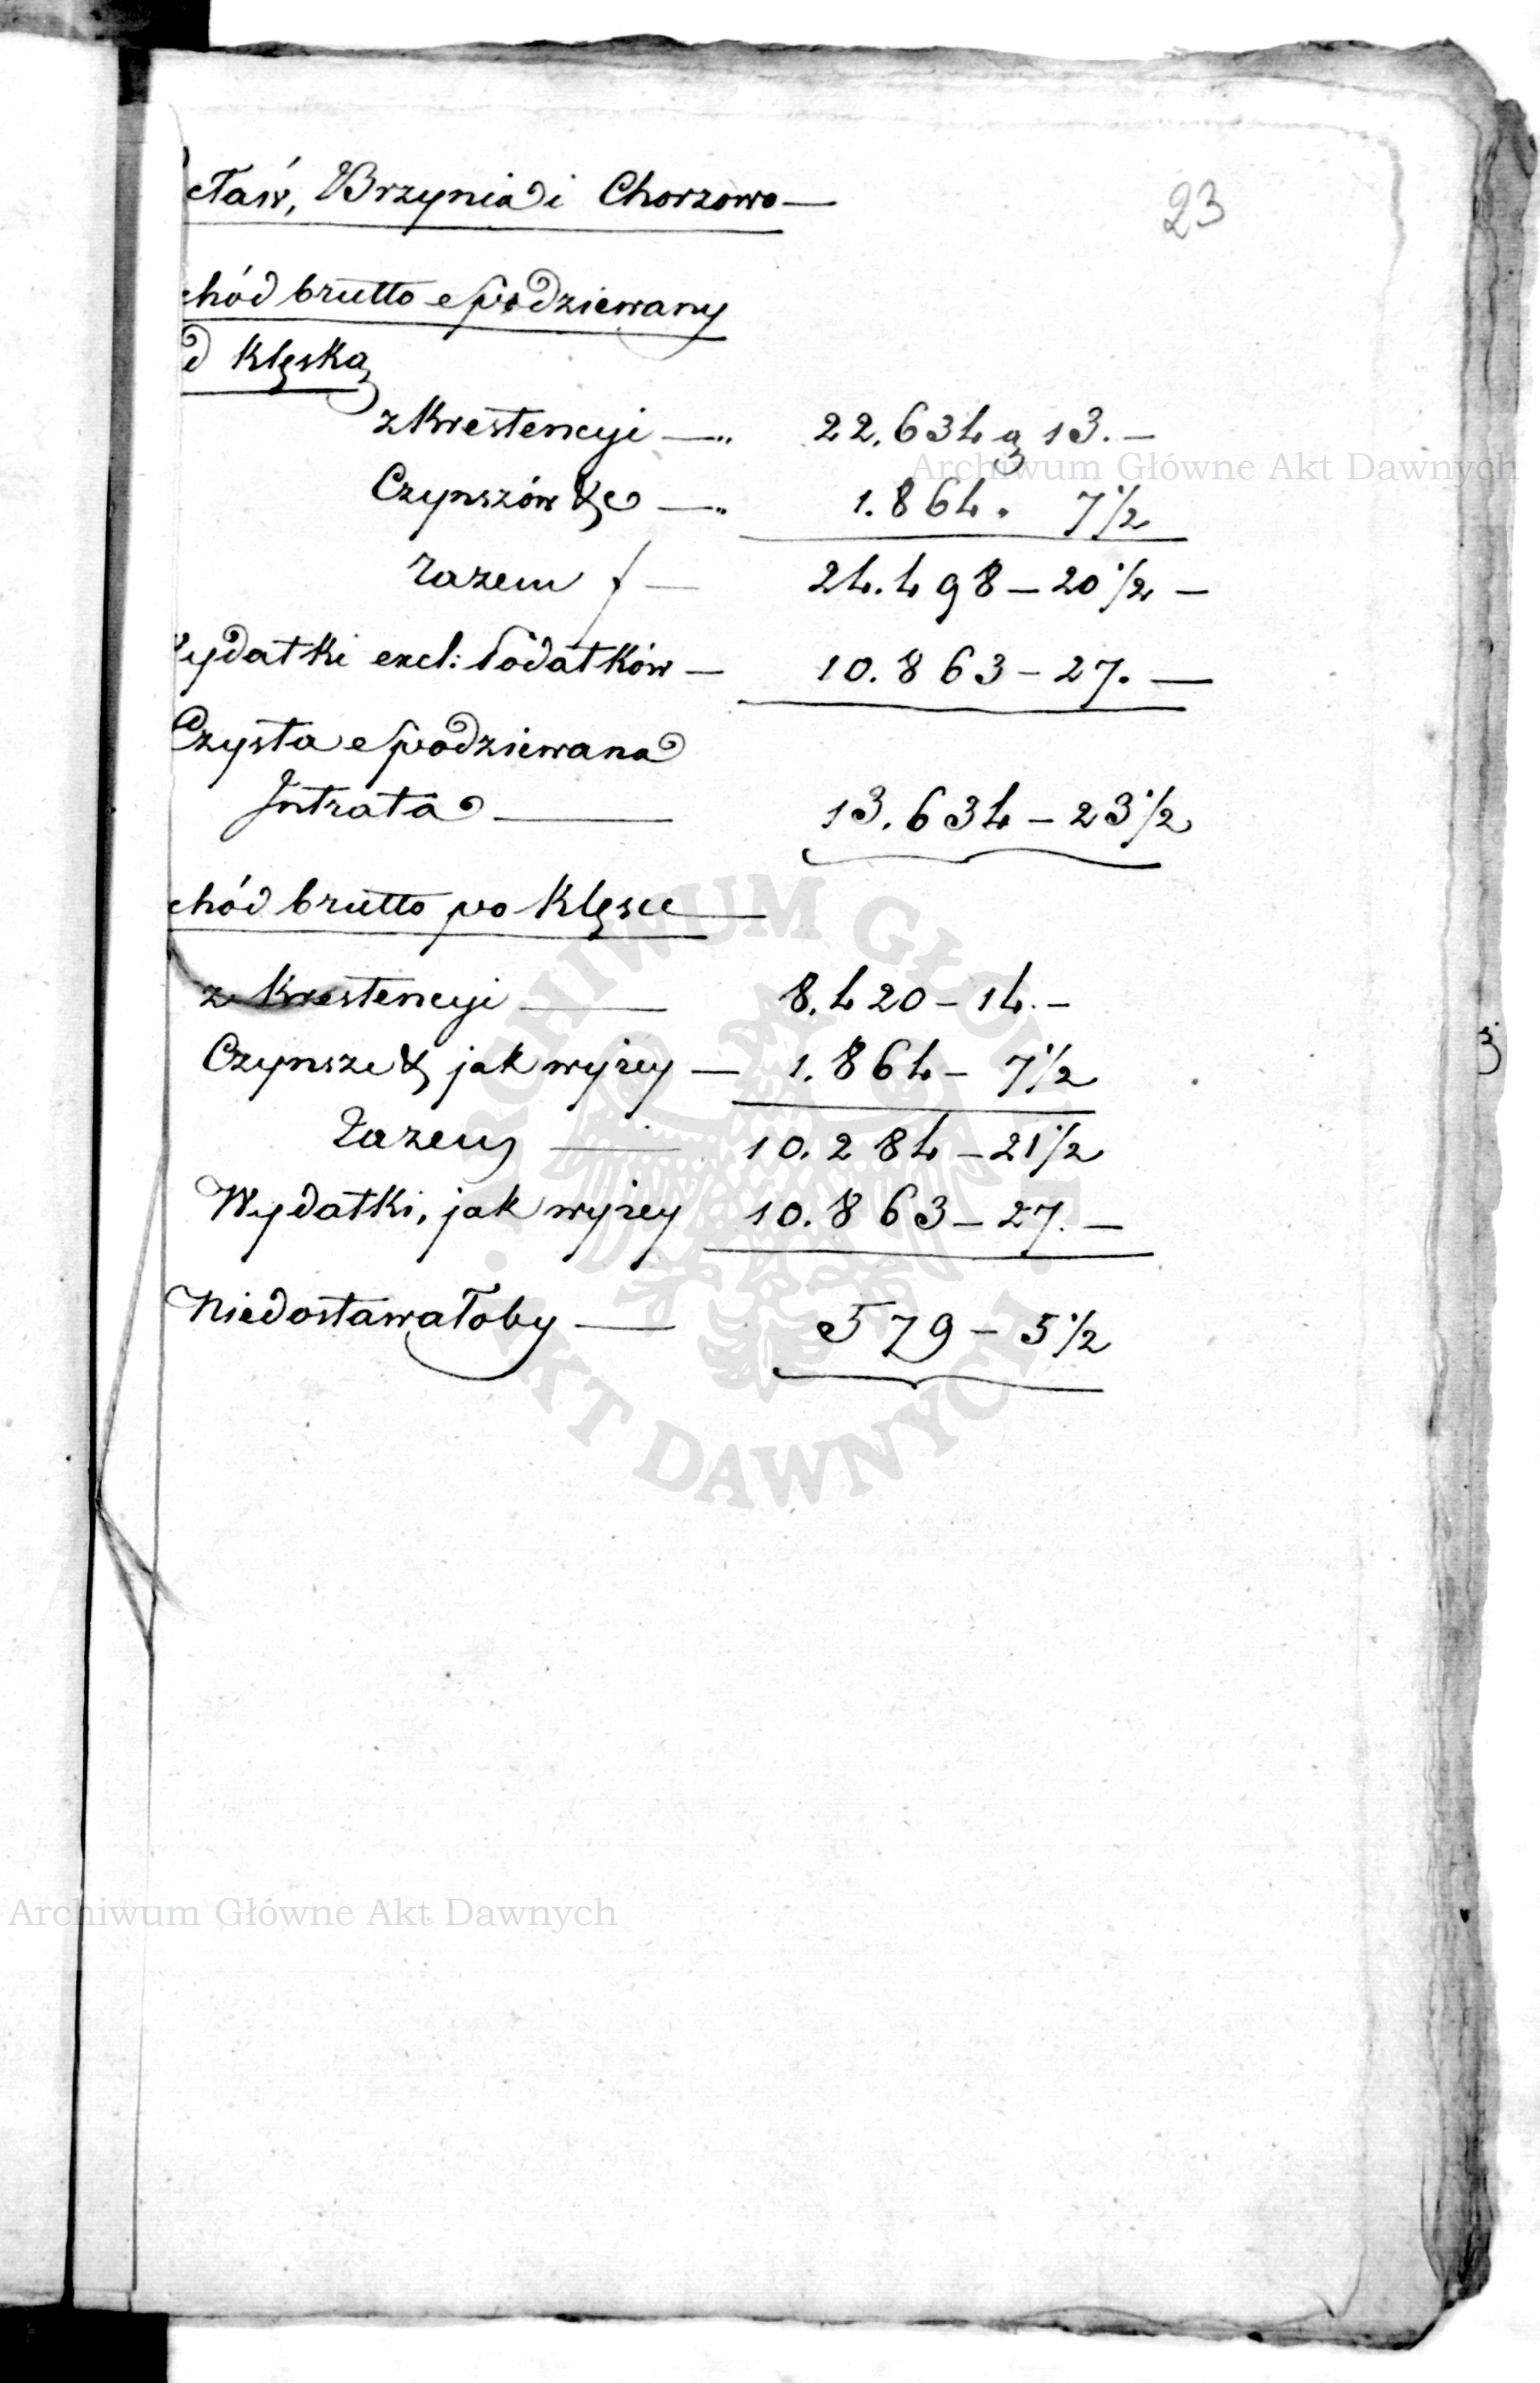 cław, Brzynia i Chorzowo —
23
chód brutto spodziewany
d klęską
z Krestencyi — 22.634 g 13. —
Czynszów &c — 1.864. 7 1/2
Razem f — 24.498 — 20 1/2 —
ydatki excl: Podatków — 10.863 — 27. —
Czysta spodziewana
Intrata — 13.634 — 23 1/2
chód brutto po klęsce —
z Krestencyi — 8.420 — 14. —
Czynsze & jak wyżey — 1.864 — 7 1/2
Razem — 10.284 — 21 1/2
Wydatki, jak wyżey 10.863 — 27. —
Niedostawałoby — 579 — 5 1/2
Archiwum Główne Akt Dawnych
ARCHIWUM GŁÓWNE AKT DAWNYCH
Archiwum Główne Akt Dawnych